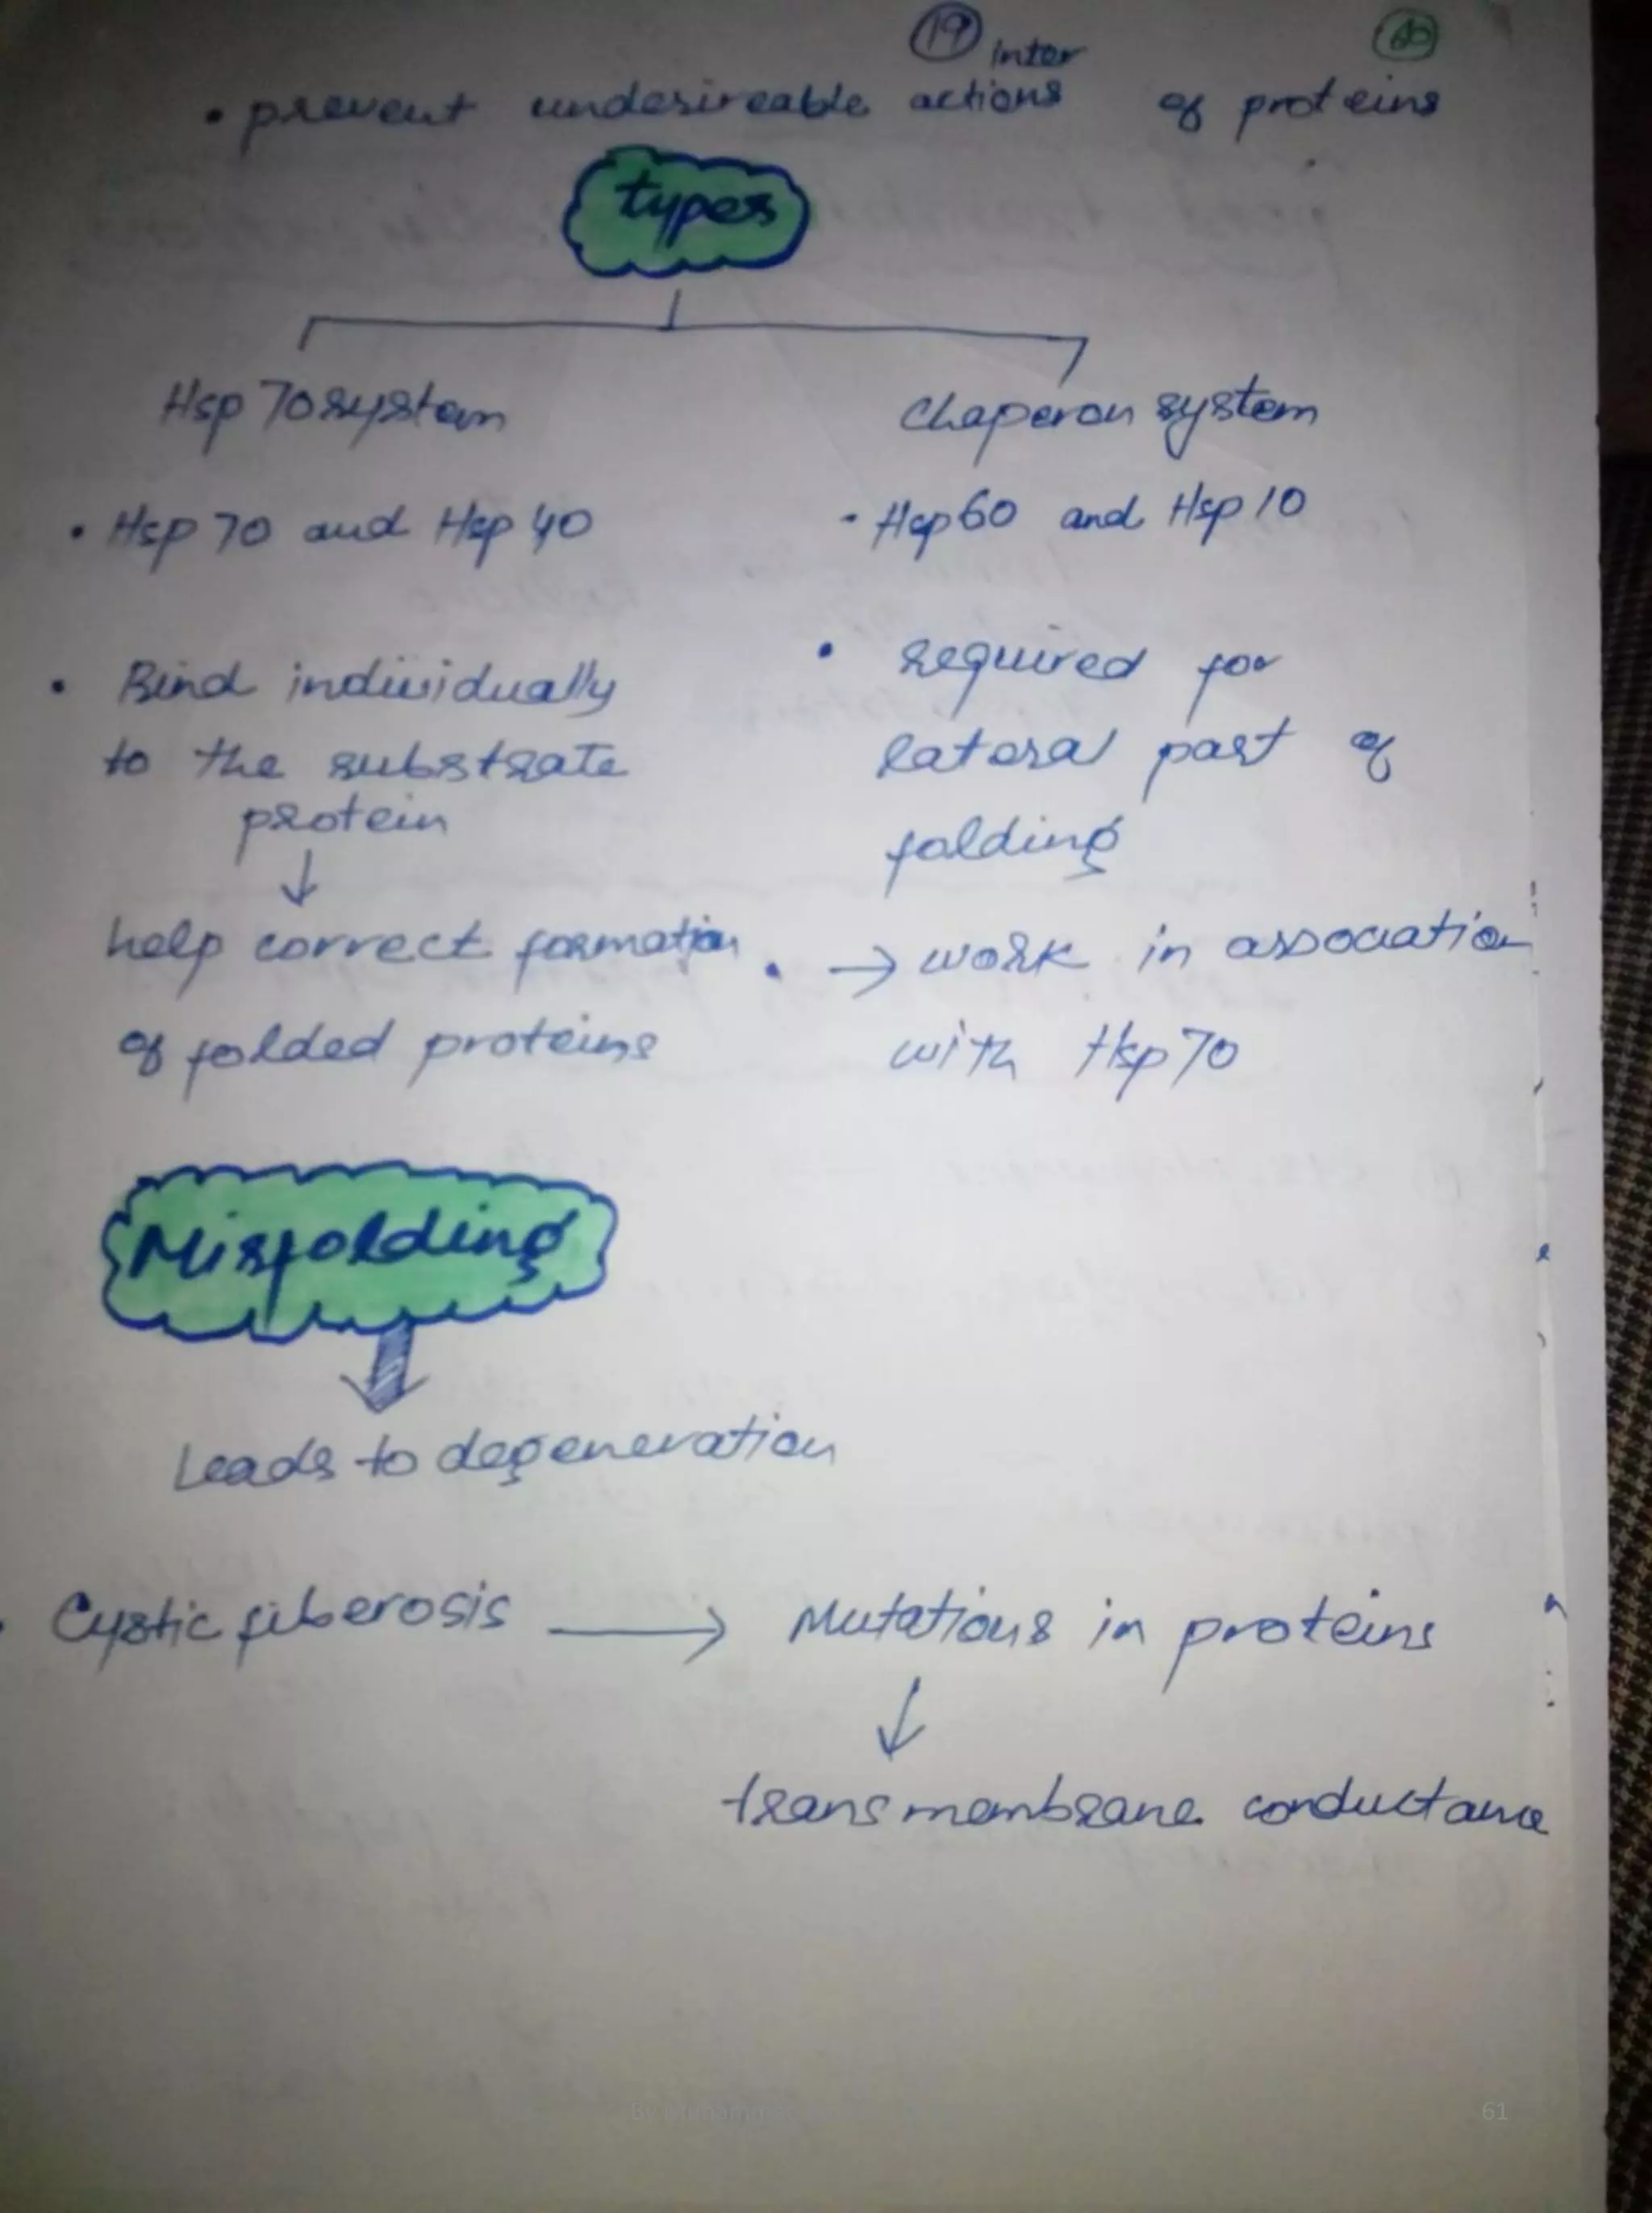 19
Inter
• prevent undesireable actions of proteins
types
Hsp 70 system
• Hsp 70 and Hsp 40
• Bind individually
to the substrate
protein
↓
help correct formation
of folded proteins
Chaperon system
- Hsp60 and Hsp10
• required for
lateral part of
folding
• → work in association
with Hsp70
Misfolding
Leads to degeneration
• Cystic fiberosis → Mutations in proteins
↓
transmembrane conductance
By
61